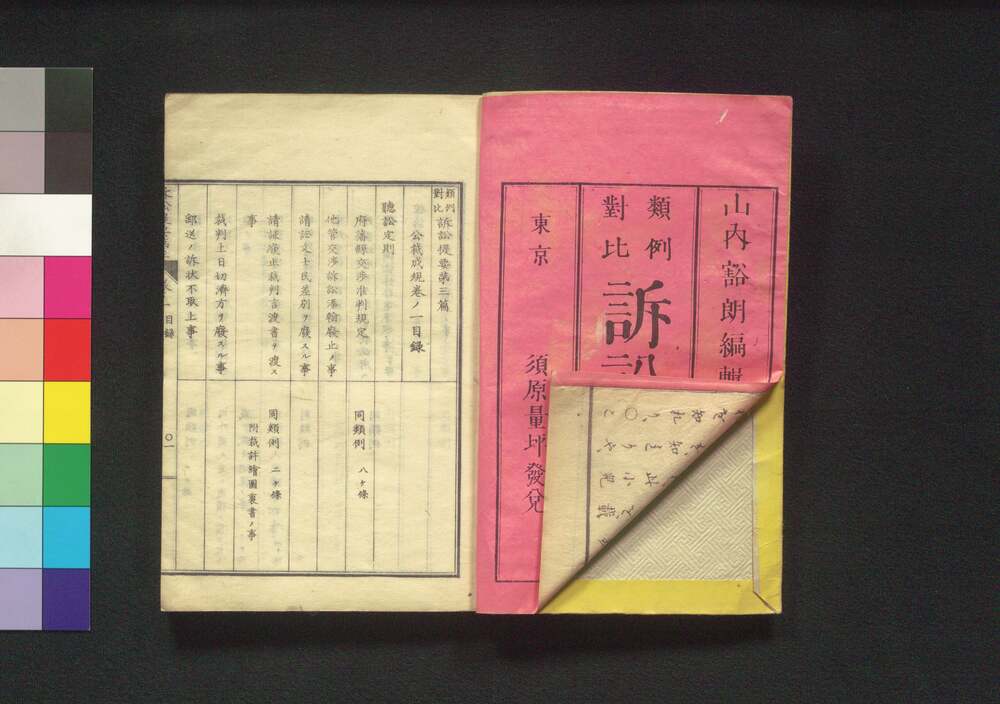 山內豁朗編輯
類例
對比
訴訟
東京
須原量坪發兌
類例
對比
訴訟提要第三篇
公裁成規卷ノ一目錄
聽訟定則
府藩縣交渉准判規定
同類例 八ケ條
他管交渉訴訟添翰廢止ノ事
請訟定士民差別ヲ廢スル事
請課廢止裁判言渡書ヲ渡ス
同類例 二ケ條
事
附裁許繪圖裏書ノ事
裁判上日切濟方ヲ廢スル事
郵送ノ訴状不取上事
目錄
〇一